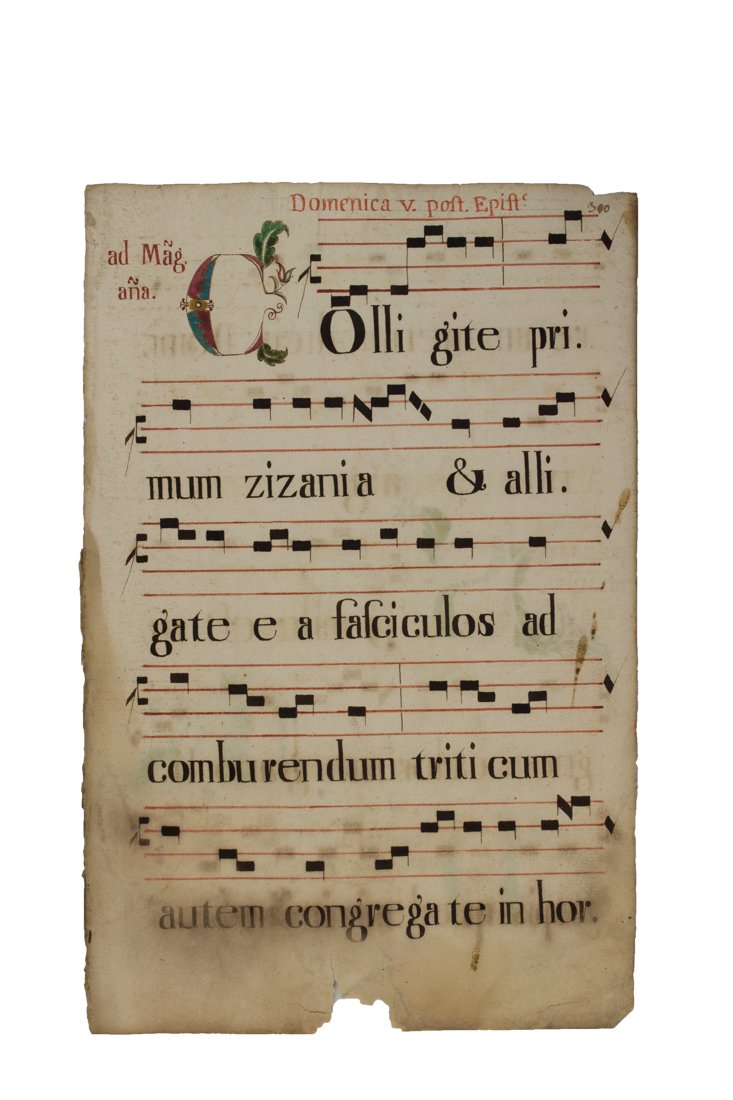 Domenica v. post. Epistᵉ
300
ad Mag̃.
añа.
COlli gite pri.
mum zizania & alli.
gate e a faſciculos ad
comburendum triti cum
autem congrega te in hor.